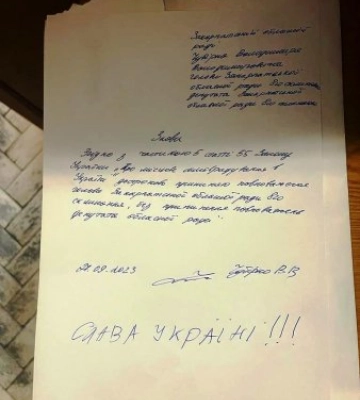 Закарпатській обласній
раді
Чубірка Володимира
Володимировича
голови Закарпатської
обласної ради VIII скликання,
депутата Закарпатської
обласної ради VIII скликання
Заява
Згідно з частиною 6 статті 55 Закону
України „Про місцеве самоврядування в
Україні" достроково припиняю повноваження
голови Закарпатської обласної ради VIII
скликання, без припинення повноважень
депутата обласної ради.
21.09.2023 Чубірко В.В
СЛАВА УКРАЇНІ!!!